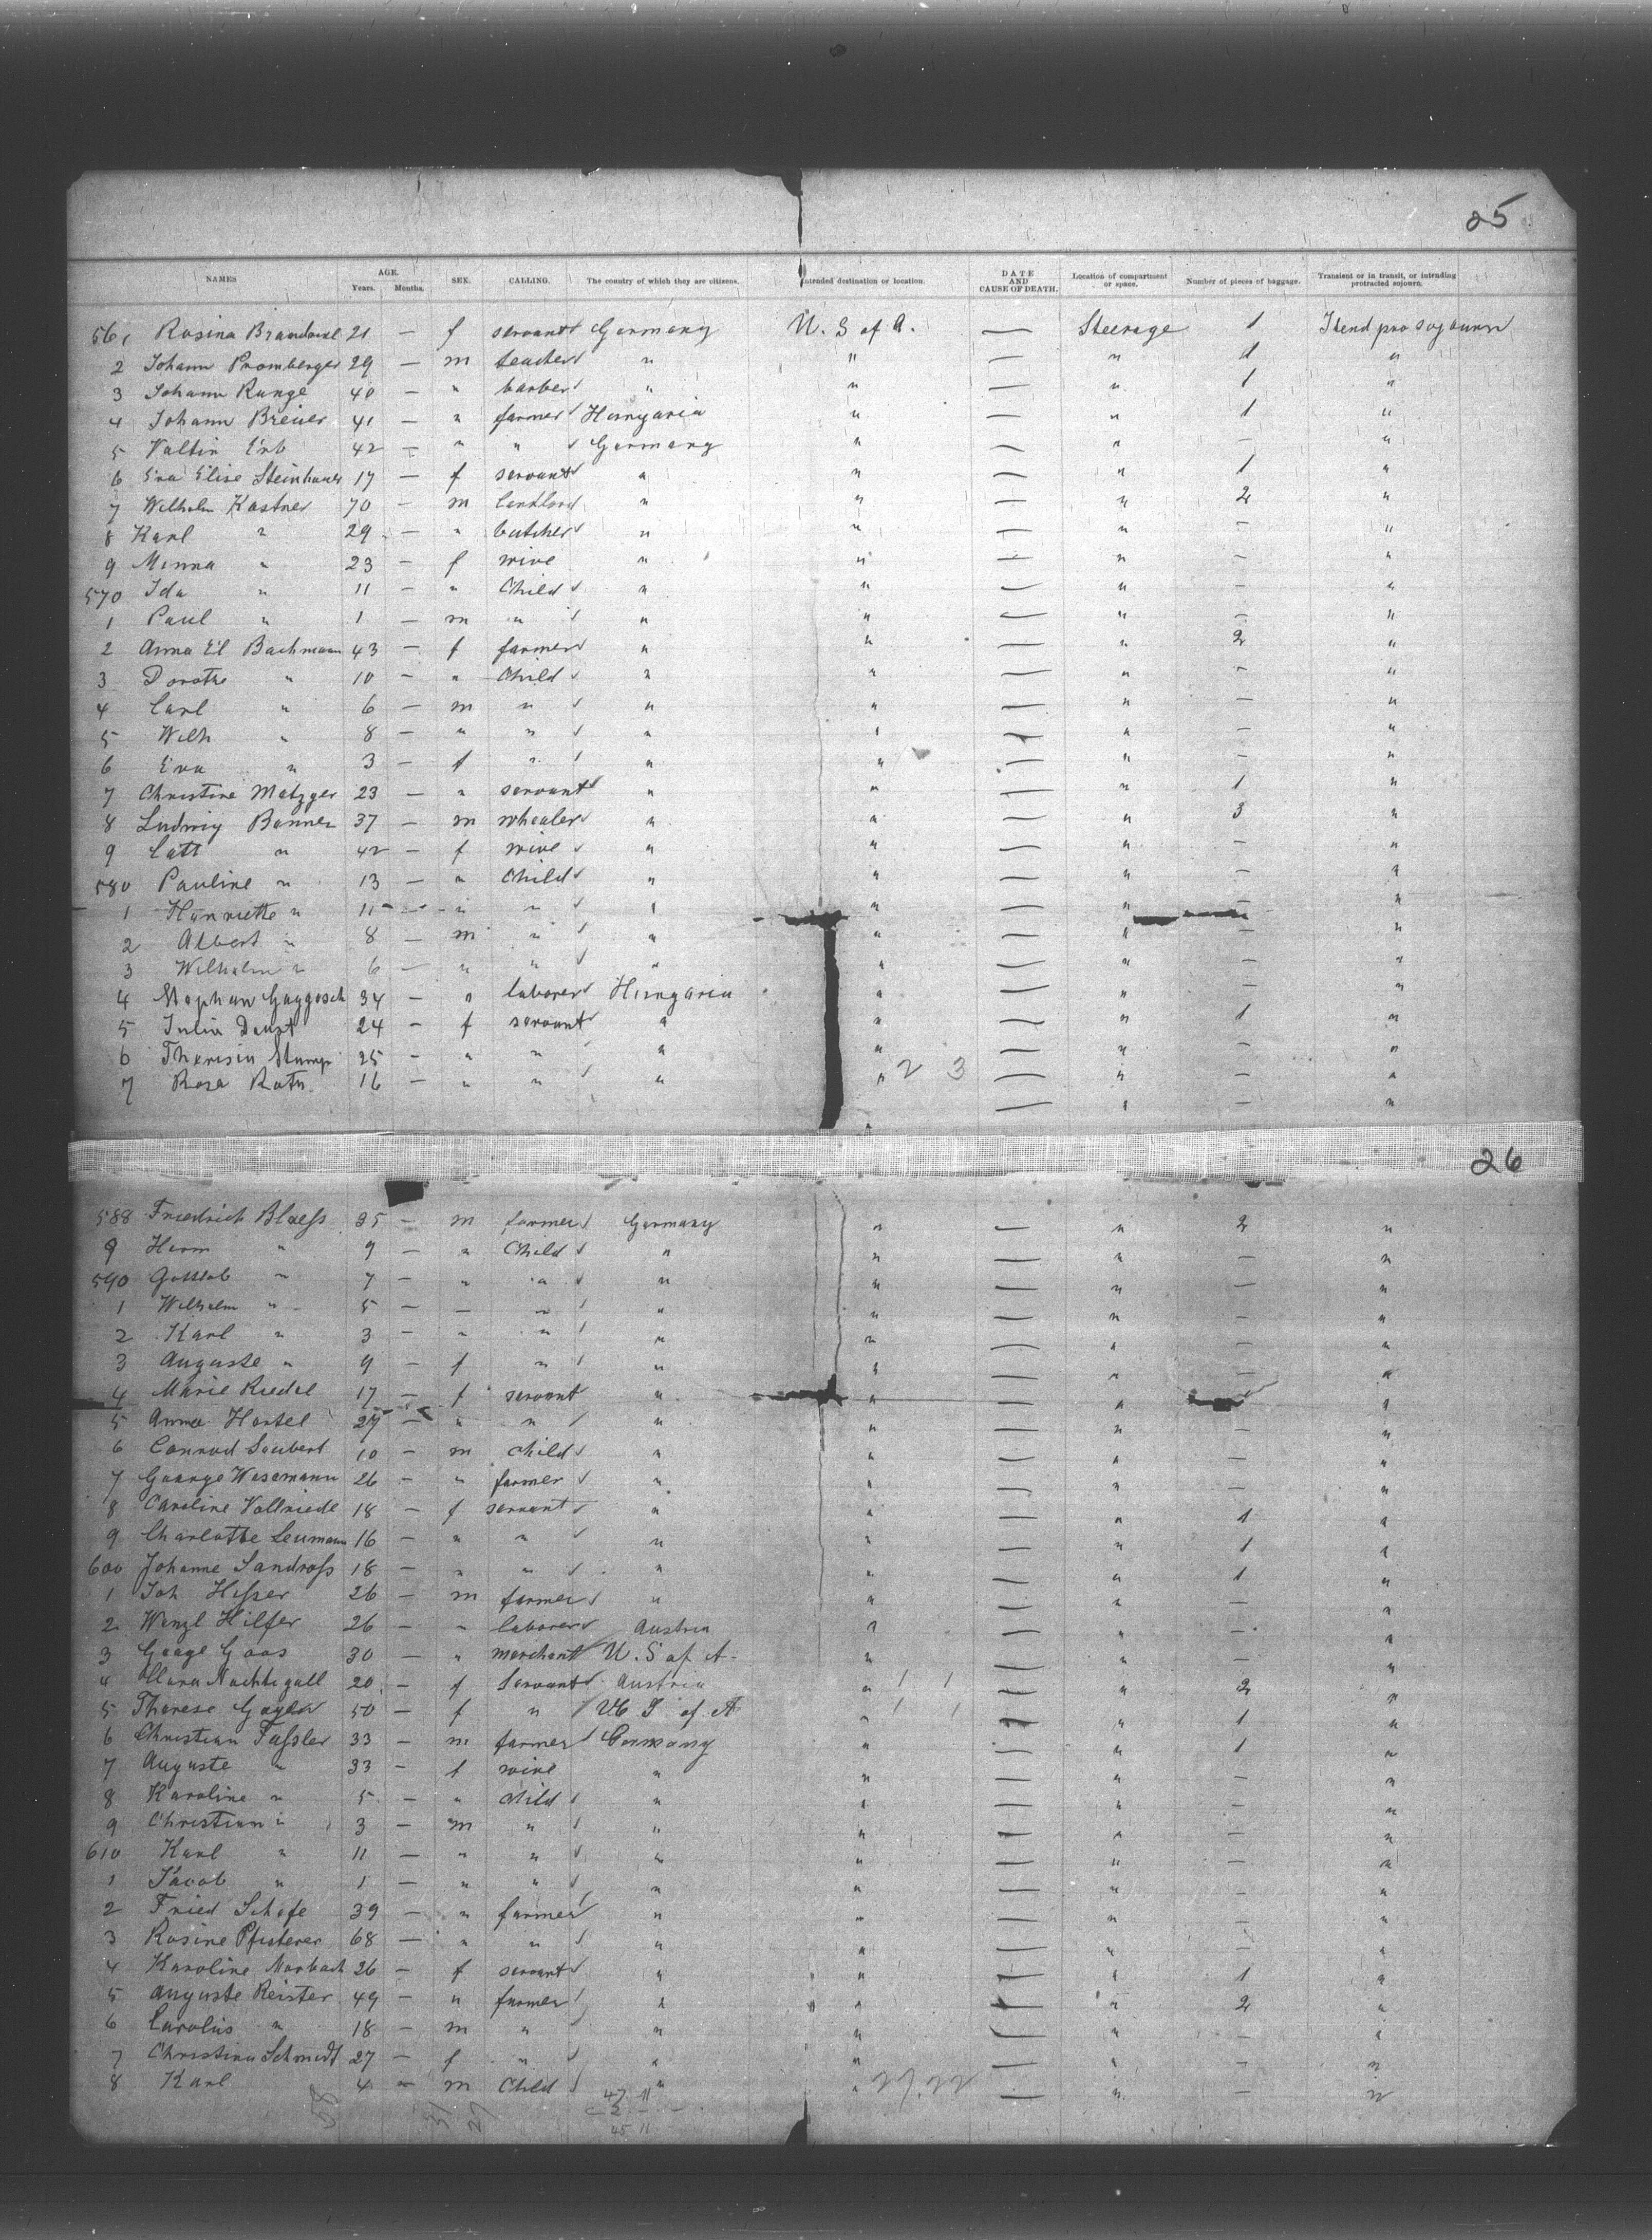 25
NAMES AGE. Years. Months. SEX. CALLING. The country of which they are citizens. Intended destination or location. DATE AND CAUSE OF DEATH. Location of compartment or space. Number of pieces of baggage. Transient or in transit, or intending protracted sojourn.
561 Rosina 21 — f servant Germany U. S of A. — Steerage 1
2 Johann Promberger 29 — m teacher " " — " 1 "
3 Johann Runge 40 — " barber " " — " 1 "
4 Johann Breier 41 — " farmer Hungaria " — " 1 "
5 Valtin Erb 42 — " " Germany " — " — "
6 Eva Elise Steinhauer 17 — f servant " " — " 1 "
7 Wilhelm Kastner 70 — m landlord " " — " 2 "
8 Karl " 29 — " butcher " " — " — "
9 Minna " 23 — f wive " " — " — "
570 Ida " 11 — " Child " " — " — "
1 Paul " 1 — m " " " — " — "
2 Anna El Bachmann 43 — f farmer " " — " 2 "
3 Dorothe " 10 — " Child " " — " — "
4 Carl " 6 — m " " " — " — "
5 Wilh " 8 — " " " " — " — "
6 Eva " 3 — f " " " — " — "
7 Christine Metzger 23 — " servant " " — " 1 "
8 Ludwig Banner 37 — m whealer " " — " 3 "
9 Cath " 42 — f wive " " — " — "
580 Pauline " 13 — " Child " " — " — "
1 Henriette " 11 — " " " " — " — "
2 Albert " 8 — m " " " — " — "
3 Wilhelm " 6 — " " " " — " — "
4 Stephan Gaygosch 34 — " laborer Hungaria " — " — "
5 Julia Daust 24 — f servant " " — " 1 "
6 Theresia Stump 25 — " " " " — " — "
7 Rosa Roth 16 — " " " " 2 3 — " — "
26
588 Friedrich Blaess 35 — m farmer Germany " — " 2 "
9 Herm " 9 — " Child " " — " — "
590 Gottlob " 7 — " " " " — " — "
1 Wilhelm " 5 — — " " " — " — "
2 Karl " 3 — " " " " — " — "
3 Auguste " 9 — f " " " — " — "
4 Marie Riedel 17 — f servant " " — " "
5 Anna Hertel 27 — " " " " — " — "
6 Conrad Seubert 10 — m child " " — " — "
7 George Wasemann 26 — " farmer " " — " — "
8 Caroline Vollriede 18 — f servant " " — " 1 "
9 Charlotte Leumann 16 — " " " " — " 1 "
600 Johanne Sandross 18 — " " " " — " 1 "
1 Joh Hesser 26 — m farmer " " — " — "
2 Wenzl Hilfer 26 — " laborer Austria " — " — "
3 Geoge Goos 30 — " merchant U. S of A- " — " — "
4 Clara Nachtigall 20 — f Servant Austria " 1 1 — " 2 "
5 Therese 50 — f " U S of A " 1 1 — " 1 "
6 Christian Fassler 33 — m farmer Germany " — " 1 "
7 Auguste " 33 — f wive " " — " — "
8 Karoline " 5 — " child " " — " — "
9 Christian " 3 — m " " " — " — "
610 Karl " 11 — " " " " — " — "
1 Jacob " 1 — " " " " — " — "
2 Fried Schefe 39 — " farmer " " — " — "
3 Rosine Pfisterer 68 — " " " " — " — "
4 Karoline Marbach 26 — f servant " " — " 1 "
5 Auguste Reister 49 — " farmer " " — " 2 "
6 Carolus " 18 — m " " " — " — "
7 Christina Schmidt 27 — f " " " — " — "
8 Karl 4 — m Child " " — " — "
47 11
2
45 11